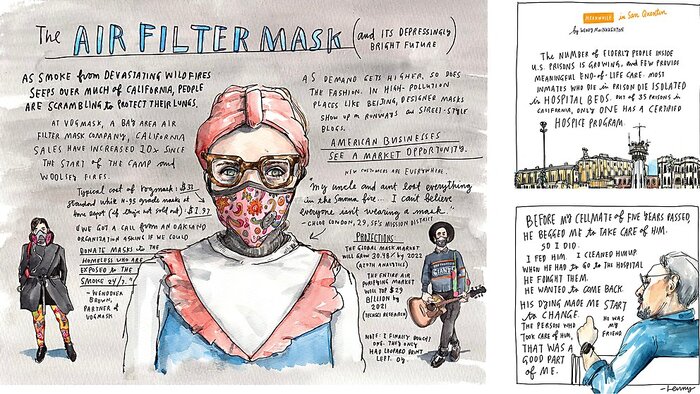 The AIR FILTER MASK (and its depressingly
bright future)
AS SMOKE FROM DEVASTATING WILDFIRES
SEEPS OVER MUCH OF CALIFORNIA, PEOPLE
ARE SCRAMBLING to PROTECT THEIR LUNGS.
AT VOGMASK, A BAY AREA AIR
FILTER MASK COMPANY, CALIFORNIA
SALES HAVE INCREASED 10x SINCE
THE START OF THE CAMP and
WOOLSEY FIRES.
Typical cost of Vogmask: $33
Standard white N-95 grade masks at
home depot (if they're not sold out) $1.97
"WE GOT A CALL FROM AN OAKLAND
ORGANIZATION ASKING IF WE COULD
DONATE MASKS to THE
HOMELESS WHO ARE
EXPOSED to THE
SMOKE 24/7."
- WENDOVER
BROWN,
PARTNER of
VOGMASK
AS DEMAND GETS HIGHER, SO DOES
THE FASHION. IN HIGH-POLLUTION
PLACES LIKE BEIJING, DESIGNER MASKS
SHOW UP on RUNWAYS and STREET-STYLE
BLOGS.
AMERICAN BUSINESSES
SEE A MARKET OPPORTUNITY.
NEW CUSTOMERS ARE EVERYWHERE.
"My uncle and aunt lost everything
in the Sonoma fire... I can't believe
everyone isn't wearing a mask"
- CHLOE CONDON, 29, SF'S MISSION DISTRICT
PROJECTIONS:
THE GLOBAL MASK MARKET
WILL GROW 30.48% by 2022
THE ENTIRE AIR
PURIFYING MARKET
WILL TOP $29
BILLION by
2021
GIANTS
NOTE: I FINALLY BOUGHT
ONE. THEY ONLY
HAD LEOPARD PRINT
LEFT.
MEANWHILE in San Quentin
by WENDY MacNAUGHTON
THE NUMBER OF ELDERLY PEOPLE INSIDE
U.S. PRISONS IS GROWING, and FEW PROVIDE
MEANINGFUL END-OF-LIFE CARE. MOST
INMATES WHO DIE in PRISON DIE ISOLATED
in HOSPITAL BEDS. OUT OF 35 PRISONS in
CALIFORNIA, ONLY ONE HAS A CERTIFIED
HOSPICE PROGRAM.
BEFORE MY CELLMATE OF FIVE YEARS PASSED,
HE BEGGED ME to TAKE CARE of HIM.
SO I DID.
I FED HIM. I CLEANED HIM UP.
WHEN HE HAD to GO to THE HOSPITAL
HE FOUGHT THEM.
HE WANTED to COME BACK.
HIS DYING MADE ME START
to CHANGE.
THE PERSON WHO
TOOK CARE of HIM,
THAT WAS A
GOOD PART
OF ME.
HE WAS
MY
FRIEND
- Lenny